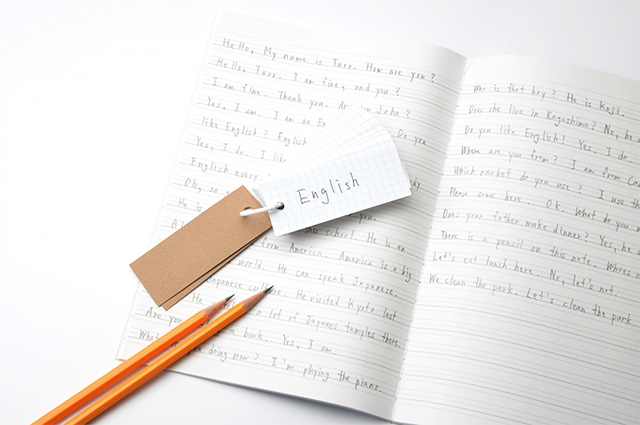 Hello, My name is Taro. How are you?
Hello, Taro. I am fine, and you?
I am fine. Thank you. John?
Yes, I am. I am an Do you
like English? English
Yes, I do. I like
English every
Oh, so
He is
school. He is an
from America. America is a big
world. He can speak Japanese.
Japanese culture. He visited Kyoto last
He a lot of Japanes temples there.
Are you book. Yes, I am.
What doing now? I'm playing the piano.
English
Who is that boy? He is Koji.
Does she live in Kagoshima? No, he
Do you like English? Yes. I do
Where are you from? I am from
Which racket do you use? I use
Please come here. O.K. What do you
Does your father make dinner? Yes, he
There is a pencil on this note. Whose
Let's eat lunch here. No, let's not.
We clean the park. Let's clean the park